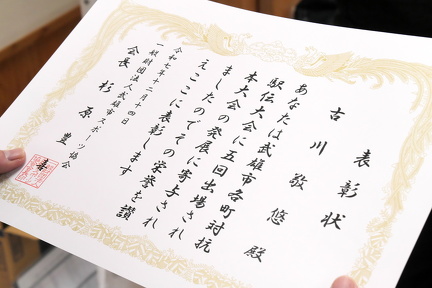 表彰状
古川敬悠殿
あなたは武雄市各町対抗
駅伝大会に五回出場され
本大会の発展に寄与され
ましたのでその栄誉を讃
えここに表彰します
令和七年十二月十四日
一般財団法人武雄市スポーツ協会
会長 杉原豊